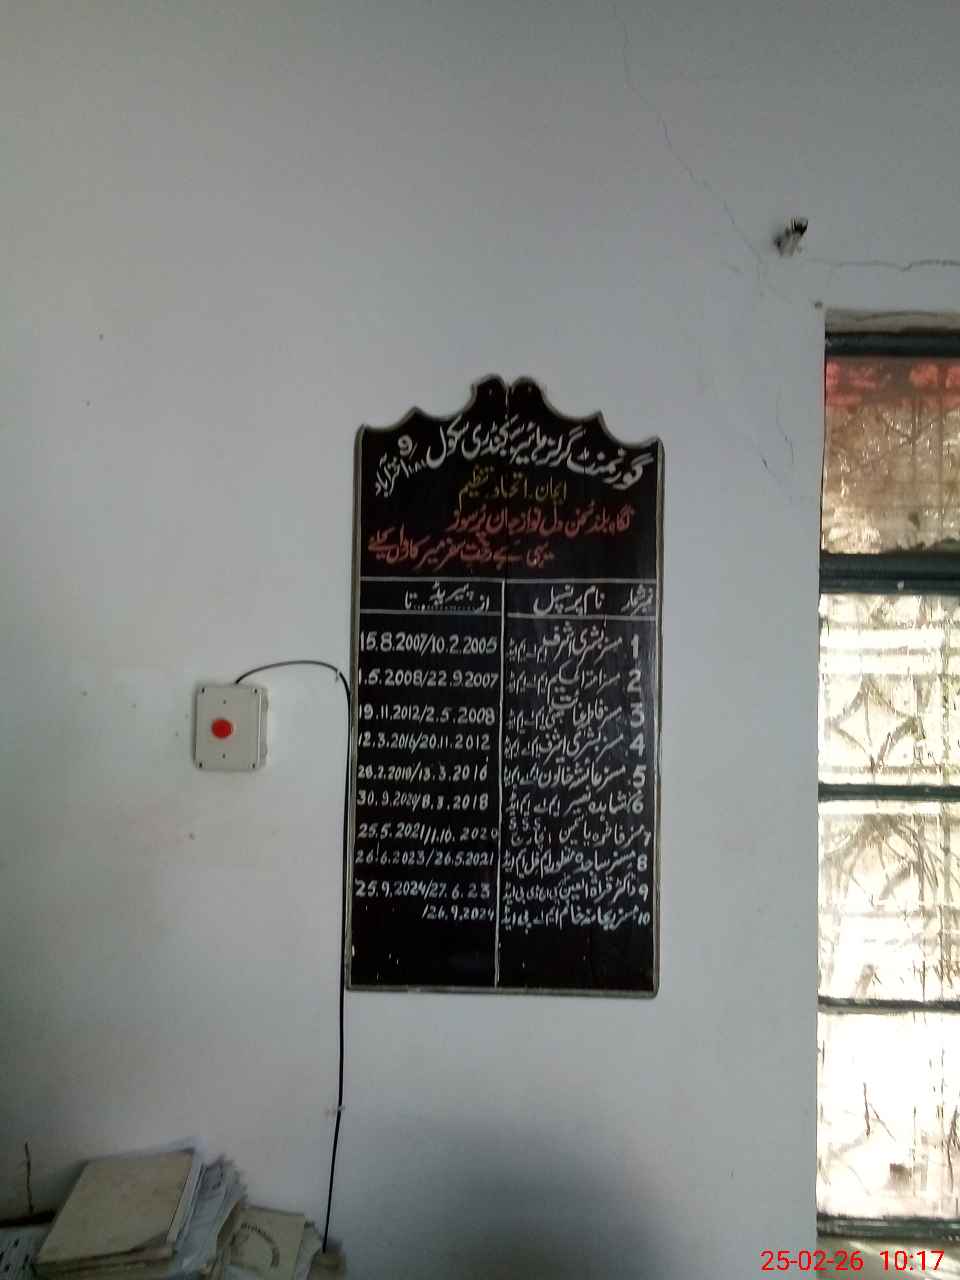 گورنمنٹ گرلز ہائیر سیکنڈری سکول 9/1AL اختر آباد
ایمان۔ اتحاد۔ تنظیم
نگاہ بلند سخن دل نواز جان پُرسوز
یہی ہے رخت سفر میر کارواں کیلئے
نمبر شمار نام پرنسپل پیریڈ از تا
1 مسز بشریٰ اشرف ایم اے ایم ایڈ 15.8.2007/10.2.2005
2 مسز ایم اے ایم ایڈ 1.5.2008/22.9.2007
3 مسز ایم اے ایم ایڈ 19.11.2012/2.5.2008
4 مسز بشریٰ اشرف ایم اے ایم ایڈ 12.3.2016/20.11.2012
5 مسز عائشہ خاتون ایم اے ایم ایڈ /13.3.2016
6 شاہدہ نصیر ایم اے ایم ایڈ 30.9.2020/8.3.2018
7 مسز فاخرہ یاسمین انچارج 25.5.2021/1.10.2020
8 مسز ساجدہ منظور ایم فل ایم ایڈ 26.6.2023/26.5.2021
9 ڈاکٹر قراۃ العین پی ایچ ڈی بی ایڈ 25.9.2024/27.6.23
10 مسز ریحانہ خانم ایم اے بی ایڈ /26.9.2024
25-02-26 10:17